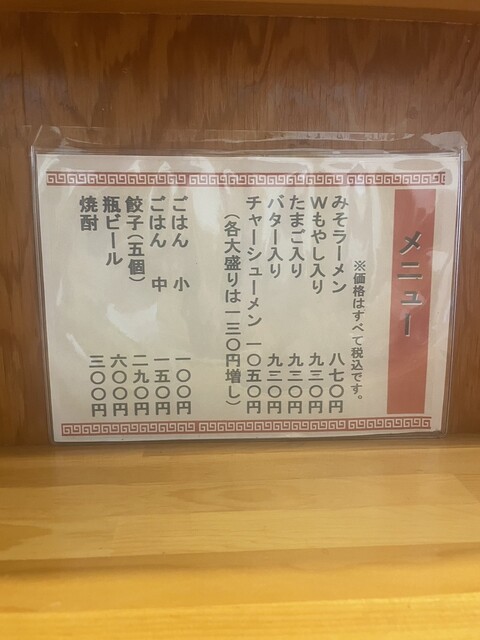 メニュー
※価格はすべて税込です。
みそラーメン 八七〇円
Wもやし入り 九三〇円
たまご入り 九三〇円
バター入り 九三〇円
チャーシューメン 一〇五〇円
（各大盛りは一三〇円増し）
ごはん 小 一〇〇円
ごはん 中 一五〇円
餃子（五個） 二九〇円
瓶ビール 六〇〇円
焼酎 三〇〇円